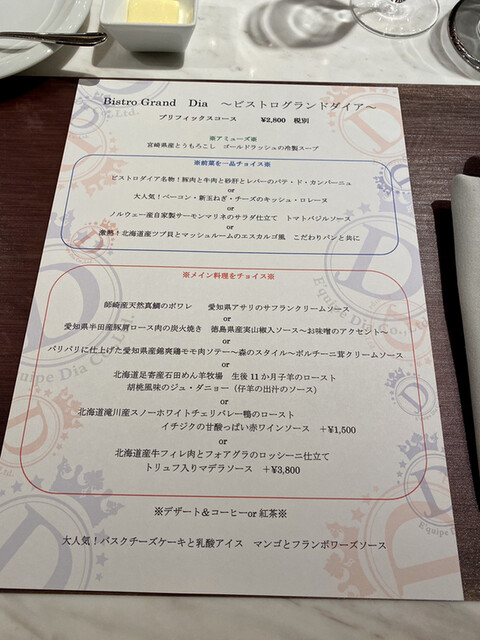 Bistro Grand Dia ～ビストログランドダイア～
プリフィックスコース ¥2,800 税別
※アミューズ※
宮崎県産とうもろこし ゴールドラッシュの冷製スープ
※前菜を一品チョイス※
ビストロダイア名物！豚肉と牛肉と砂肝とレバーのパテ・ド・カンパーニュ
or
大人気！ベーコン・新玉ねぎ・チーズのキッシュ・ロレーヌ
or
ノルウェー産自家製サーモンマリネのサラダ仕立て トマトバジルソース
or
激熱！北海道産ツブ貝とマッシュルームのエスカルゴ風 こだわりパンと共に
※メイン料理をチョイス※
師崎産天然真鯛のポワレ 愛知県アサリのサフランクリームソース
or
愛知県半田産豚肩ロース肉の炭火焼き 徳島県産実山椒入ソース～お味噌のアクセント～
or
パリパリに仕上げた愛知県産錦爽鶏モモ肉ソテー～森のスタイル～ポルチーニ茸クリームソース
or
北海道足寄産石田めん羊牧場 生後11か月子羊のロースト
胡桃風味のジュ・ダニョー（仔羊の出汁のソース）
or
北海道滝川産スノーホワイトチェリバレー鴨のロースト
イチジクの甘酸っぱい赤ワインソース ＋¥1,500
or
北海道産牛フィレ肉とフォアグラのロッシーニ仕立て
トリュフ入りマデラソース ＋¥3,800
※デザート＆コーヒーor 紅茶※
大人気！バスクチーズケーキと乳酸アイス マンゴとフランボワーズソース